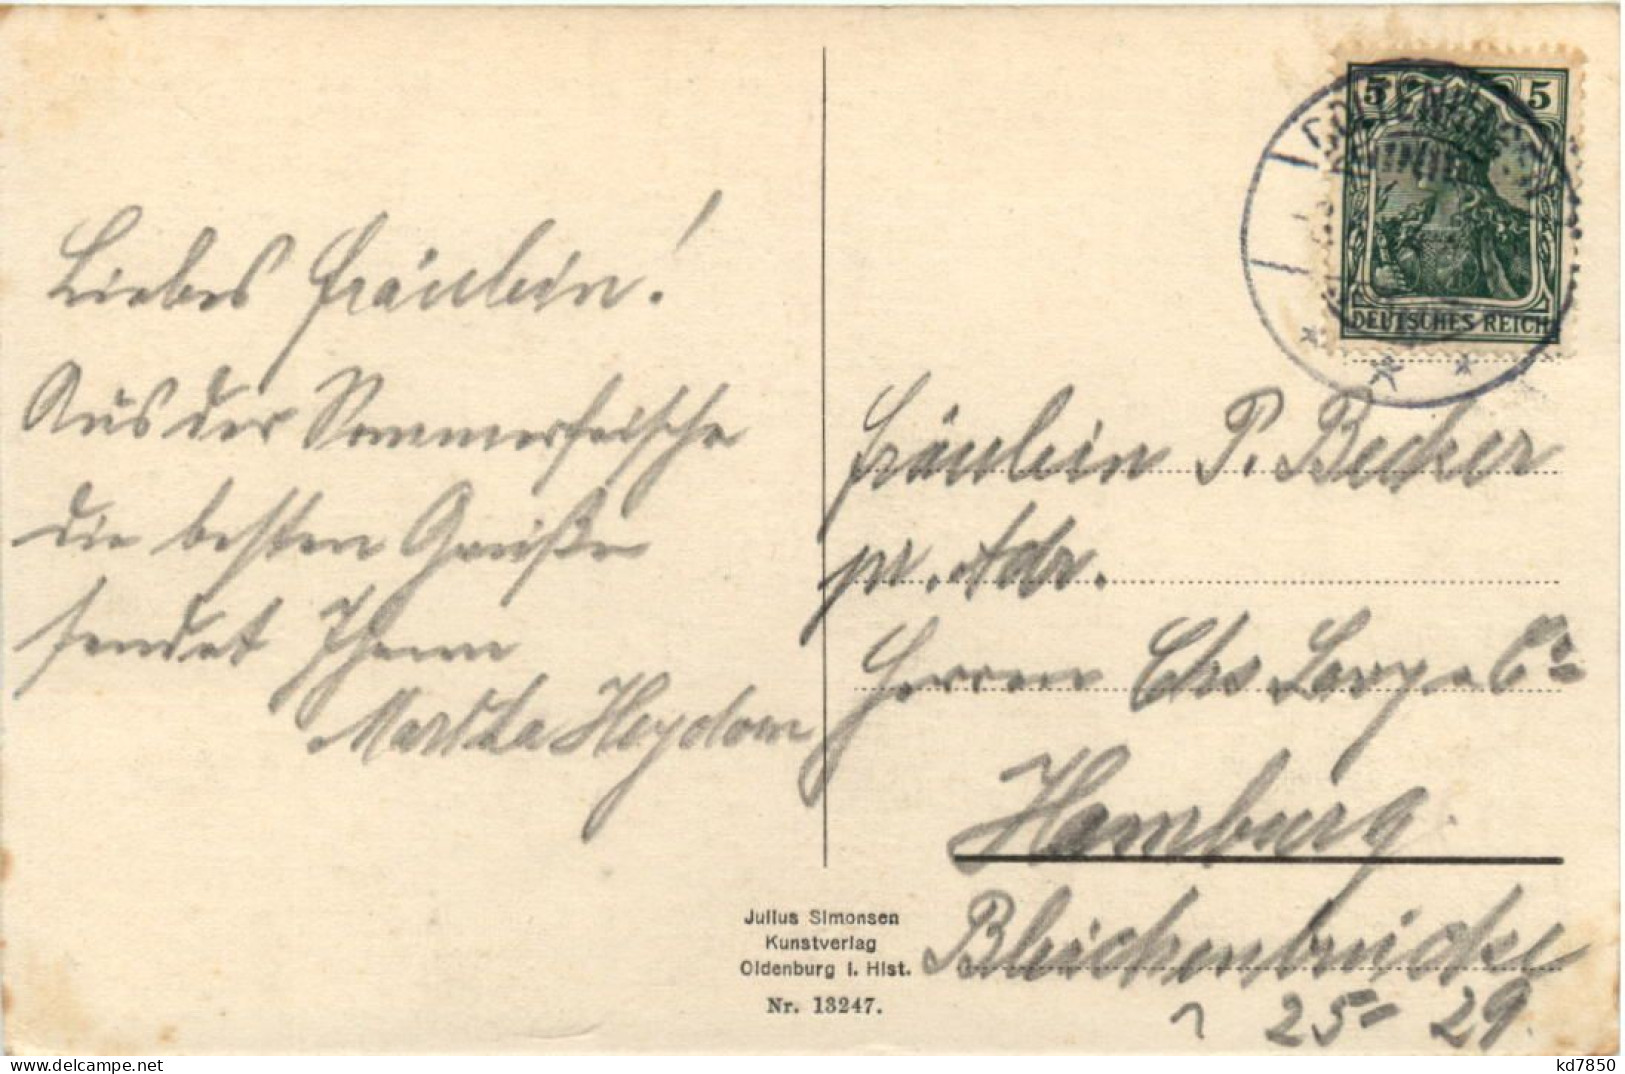 Liebes Fräulein!
Aus der Sommerfrische
die besten Grüße
sendet Ihnen
Martha Heydorn
5 5
DEUTSCHES REICH
Fräulein P. Becker
pr. Adr.
Herren Chs Lavy & Co
Hamburg
Bleichenbrücke
25-29.
Julius Simonsen
Kunstverlag
Oldenburg i. Hlst.
Nr. 13247.
www.delcampe.net
kd7850